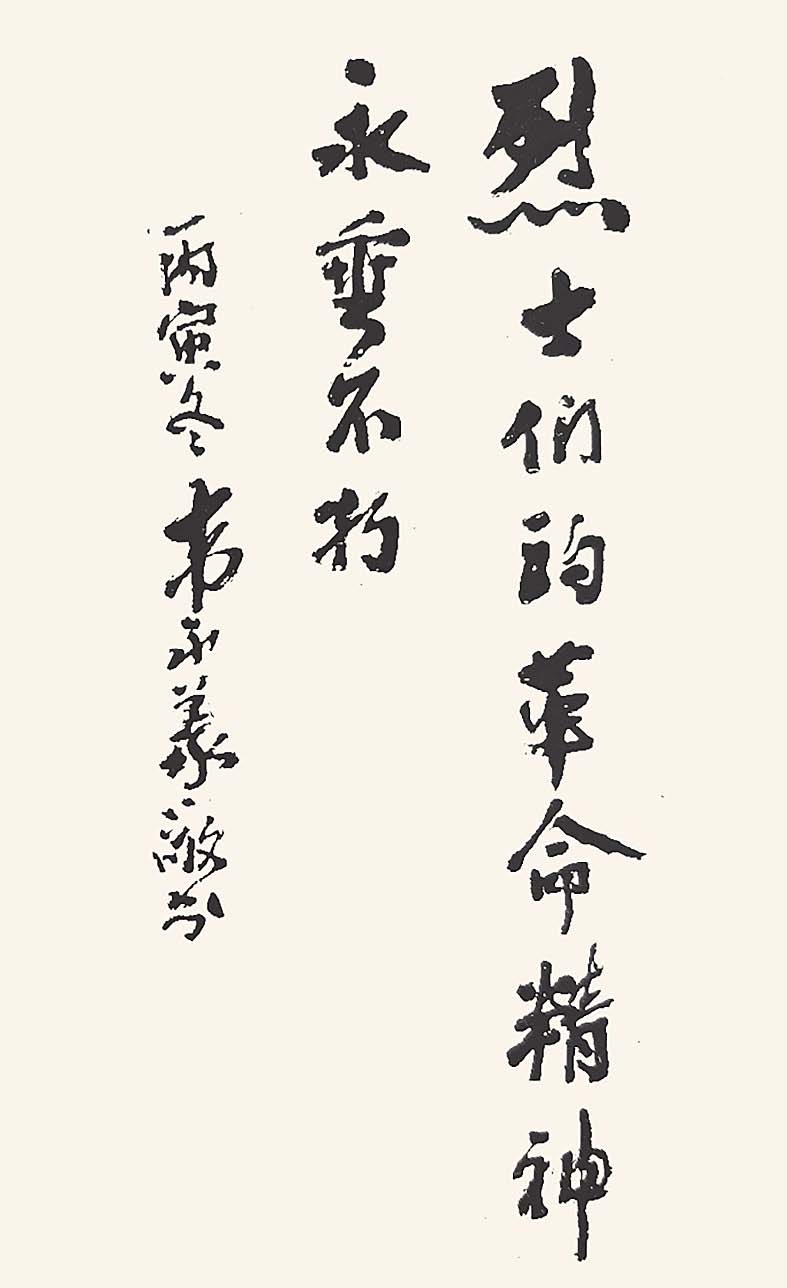 烈士们的革命精神
永垂不朽
丙寅冬韦永義敬书